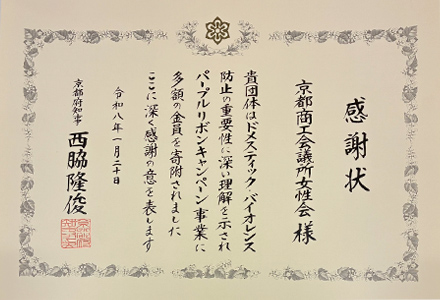 感謝状
京都商工会議所女性会 様
貴団体はドメスティック・バイオレンス
防止の重要性に深い理解を示され
パープルリボンキャンペーン事業に
多額の金員を寄附されました
ここに深く感謝の意を表します
令和八年一月二十日
京都府知事 西脇隆俊